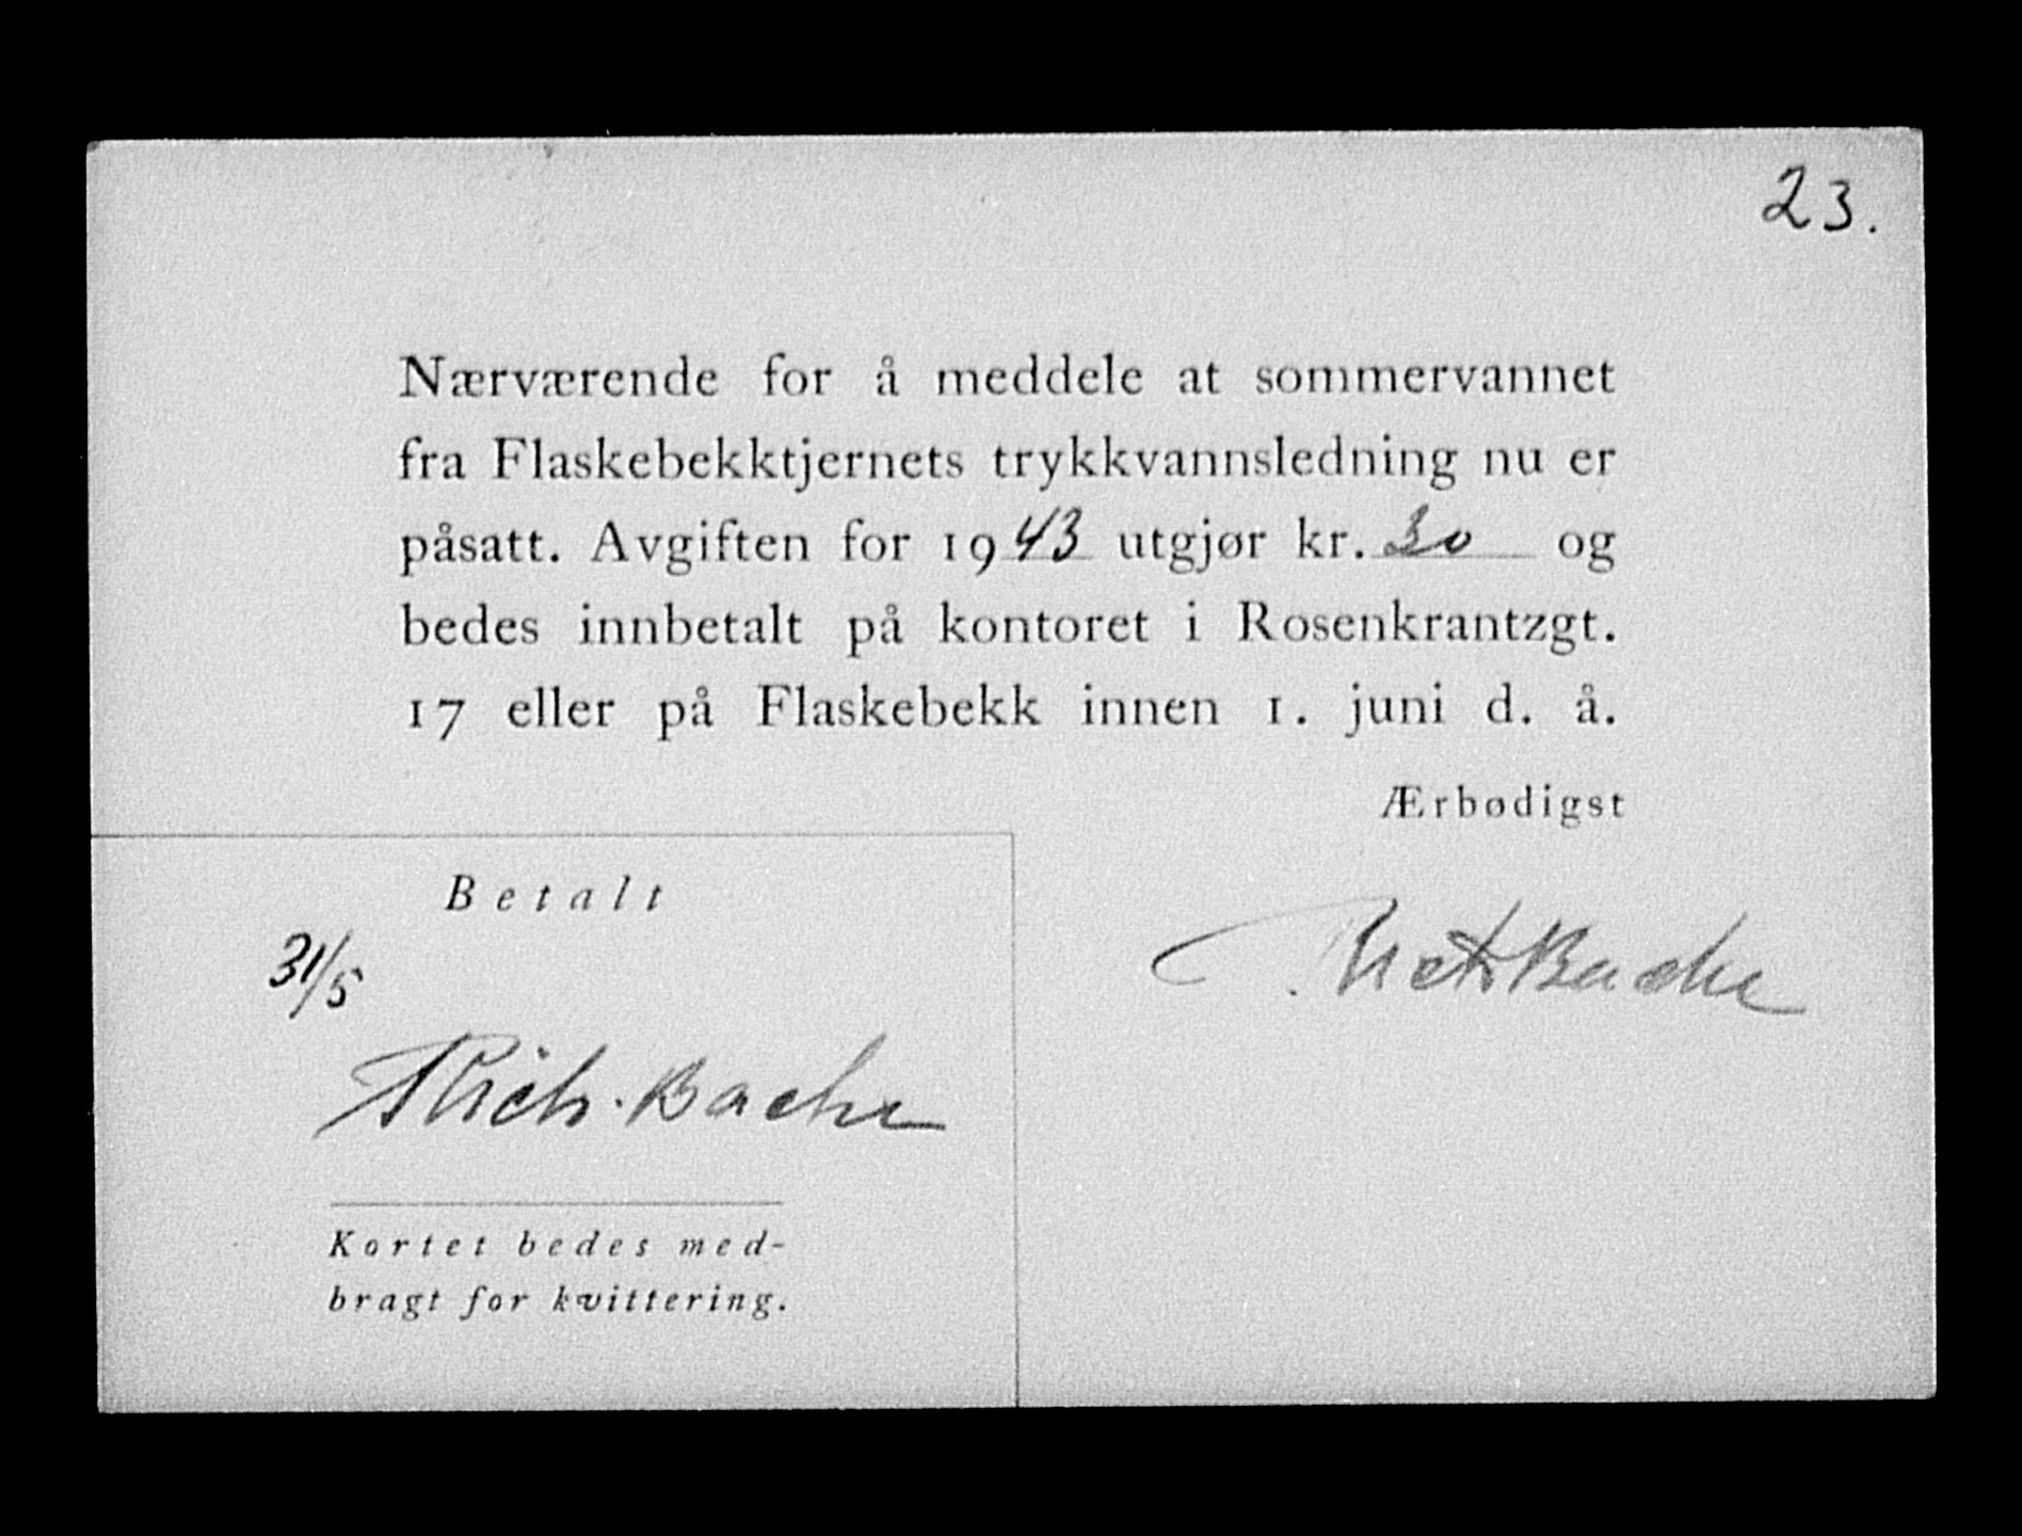 23.
Nærværende for å meddele at sommervannet
fra Flaskebekktjernets trykkvannsledning nu er
påsatt. Avgiften for 1943 utgjør kr. 30 og
bedes innbetalt på kontoret i Rosenkrantzgt.
17 eller på Flaskebekk innen 1. juni d. å.
Ærbødigst
Bache
Betalt
31/5
Rich. Bache
Kortet bedes med-
bragt for kvittering.